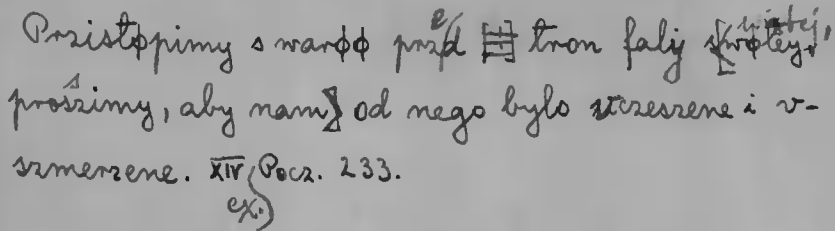 Przistøpimy s warøø przed tron faly swøtey,
prossimy, aby nam od nego bylo uczeszene i v-
szmerzene. XIV ex. Pocz. 233.